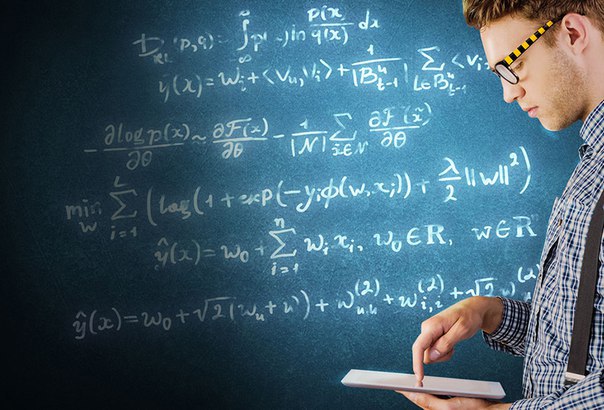 D_KL (P, Q) = ∫_{-∞}^{∞} p(x) ln p(x)/q(x) dx
ŷ(x) = w_i + ⟨v_u, v_i⟩ + 1/|B^u_{t-1}| Σ_{L∈B^u_{t-1}} ⟨v_i
- ∂log p(x)/∂θ ≈ ∂F(x)/∂θ - 1/|N| Σ_{x̃∈N} ∂F(x̃)/∂θ
min_w Σ_{i=1}^{L} (log(1 + exp(-y_i ϕ(w, x_i)) + λ/2 ||w||²)
ŷ(x) = w_0 + Σ_{i=1}^{n} w_i x_i, w_0 ∈ ℝ, w ∈ ℝ
ŷ(x) = w_0 + √2 (w_u + w_i) + w^{(2)}_{u,u} + w^{(2)}_{i,i} + √2 w^{(2)}